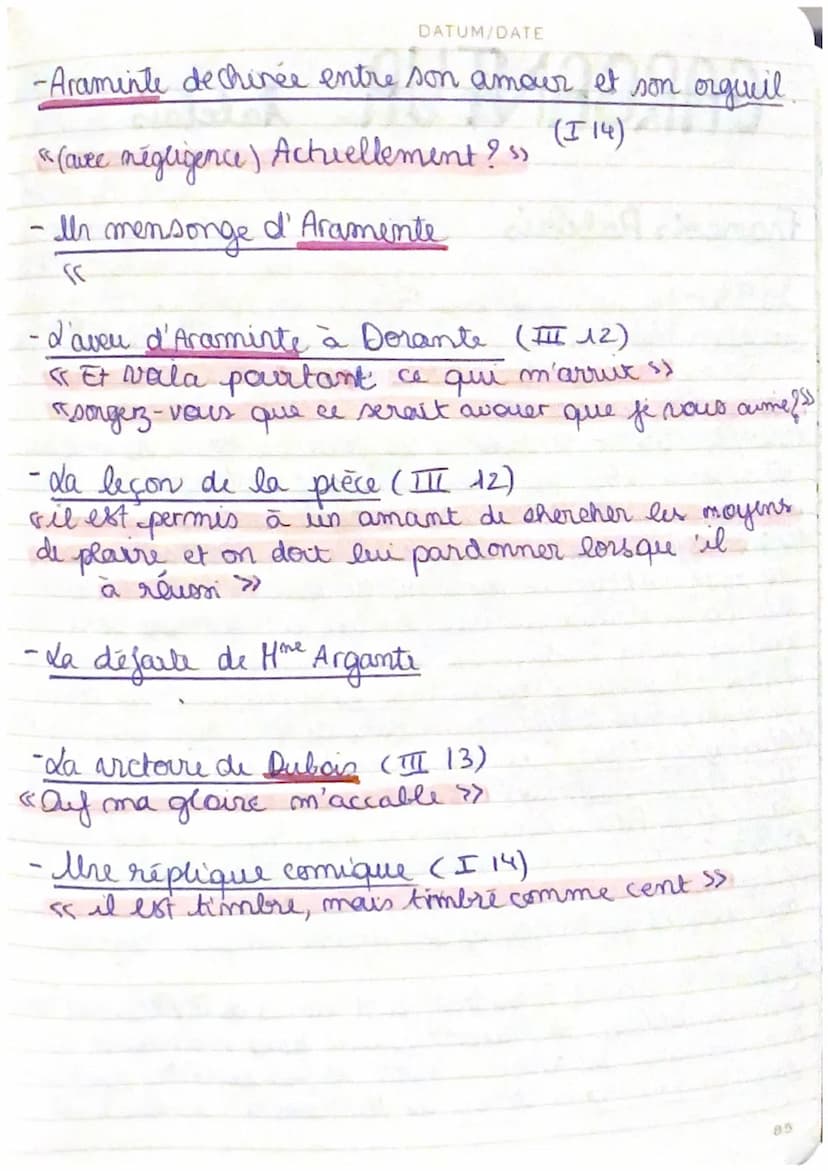 DATUM/DATE
- Araminte dechirée entre son amour et son orgueil
(I 14)
« (avec négligence) Actuellement ? »
- Un mensonge d'Araminte
«
- L'aveu d'Araminte à Dorante (III 12)
« Et voila pourtant ce qui m'arrive »
« songez-vous que ce serait avouer que je vous aime? »
- La leçon de la pièce (III 12)
« il est permis à un amant de chercher les moyens
de plaire et on doit lui pardonner lorsque'il
à réussi »
- La défaite de Mme Argante
- La victoire de Dubois (III 13)
« Ouf ma gloire m'accable »
- Une réplique comique (I 14)
« il est timbre, mais timbré comme cent »
89